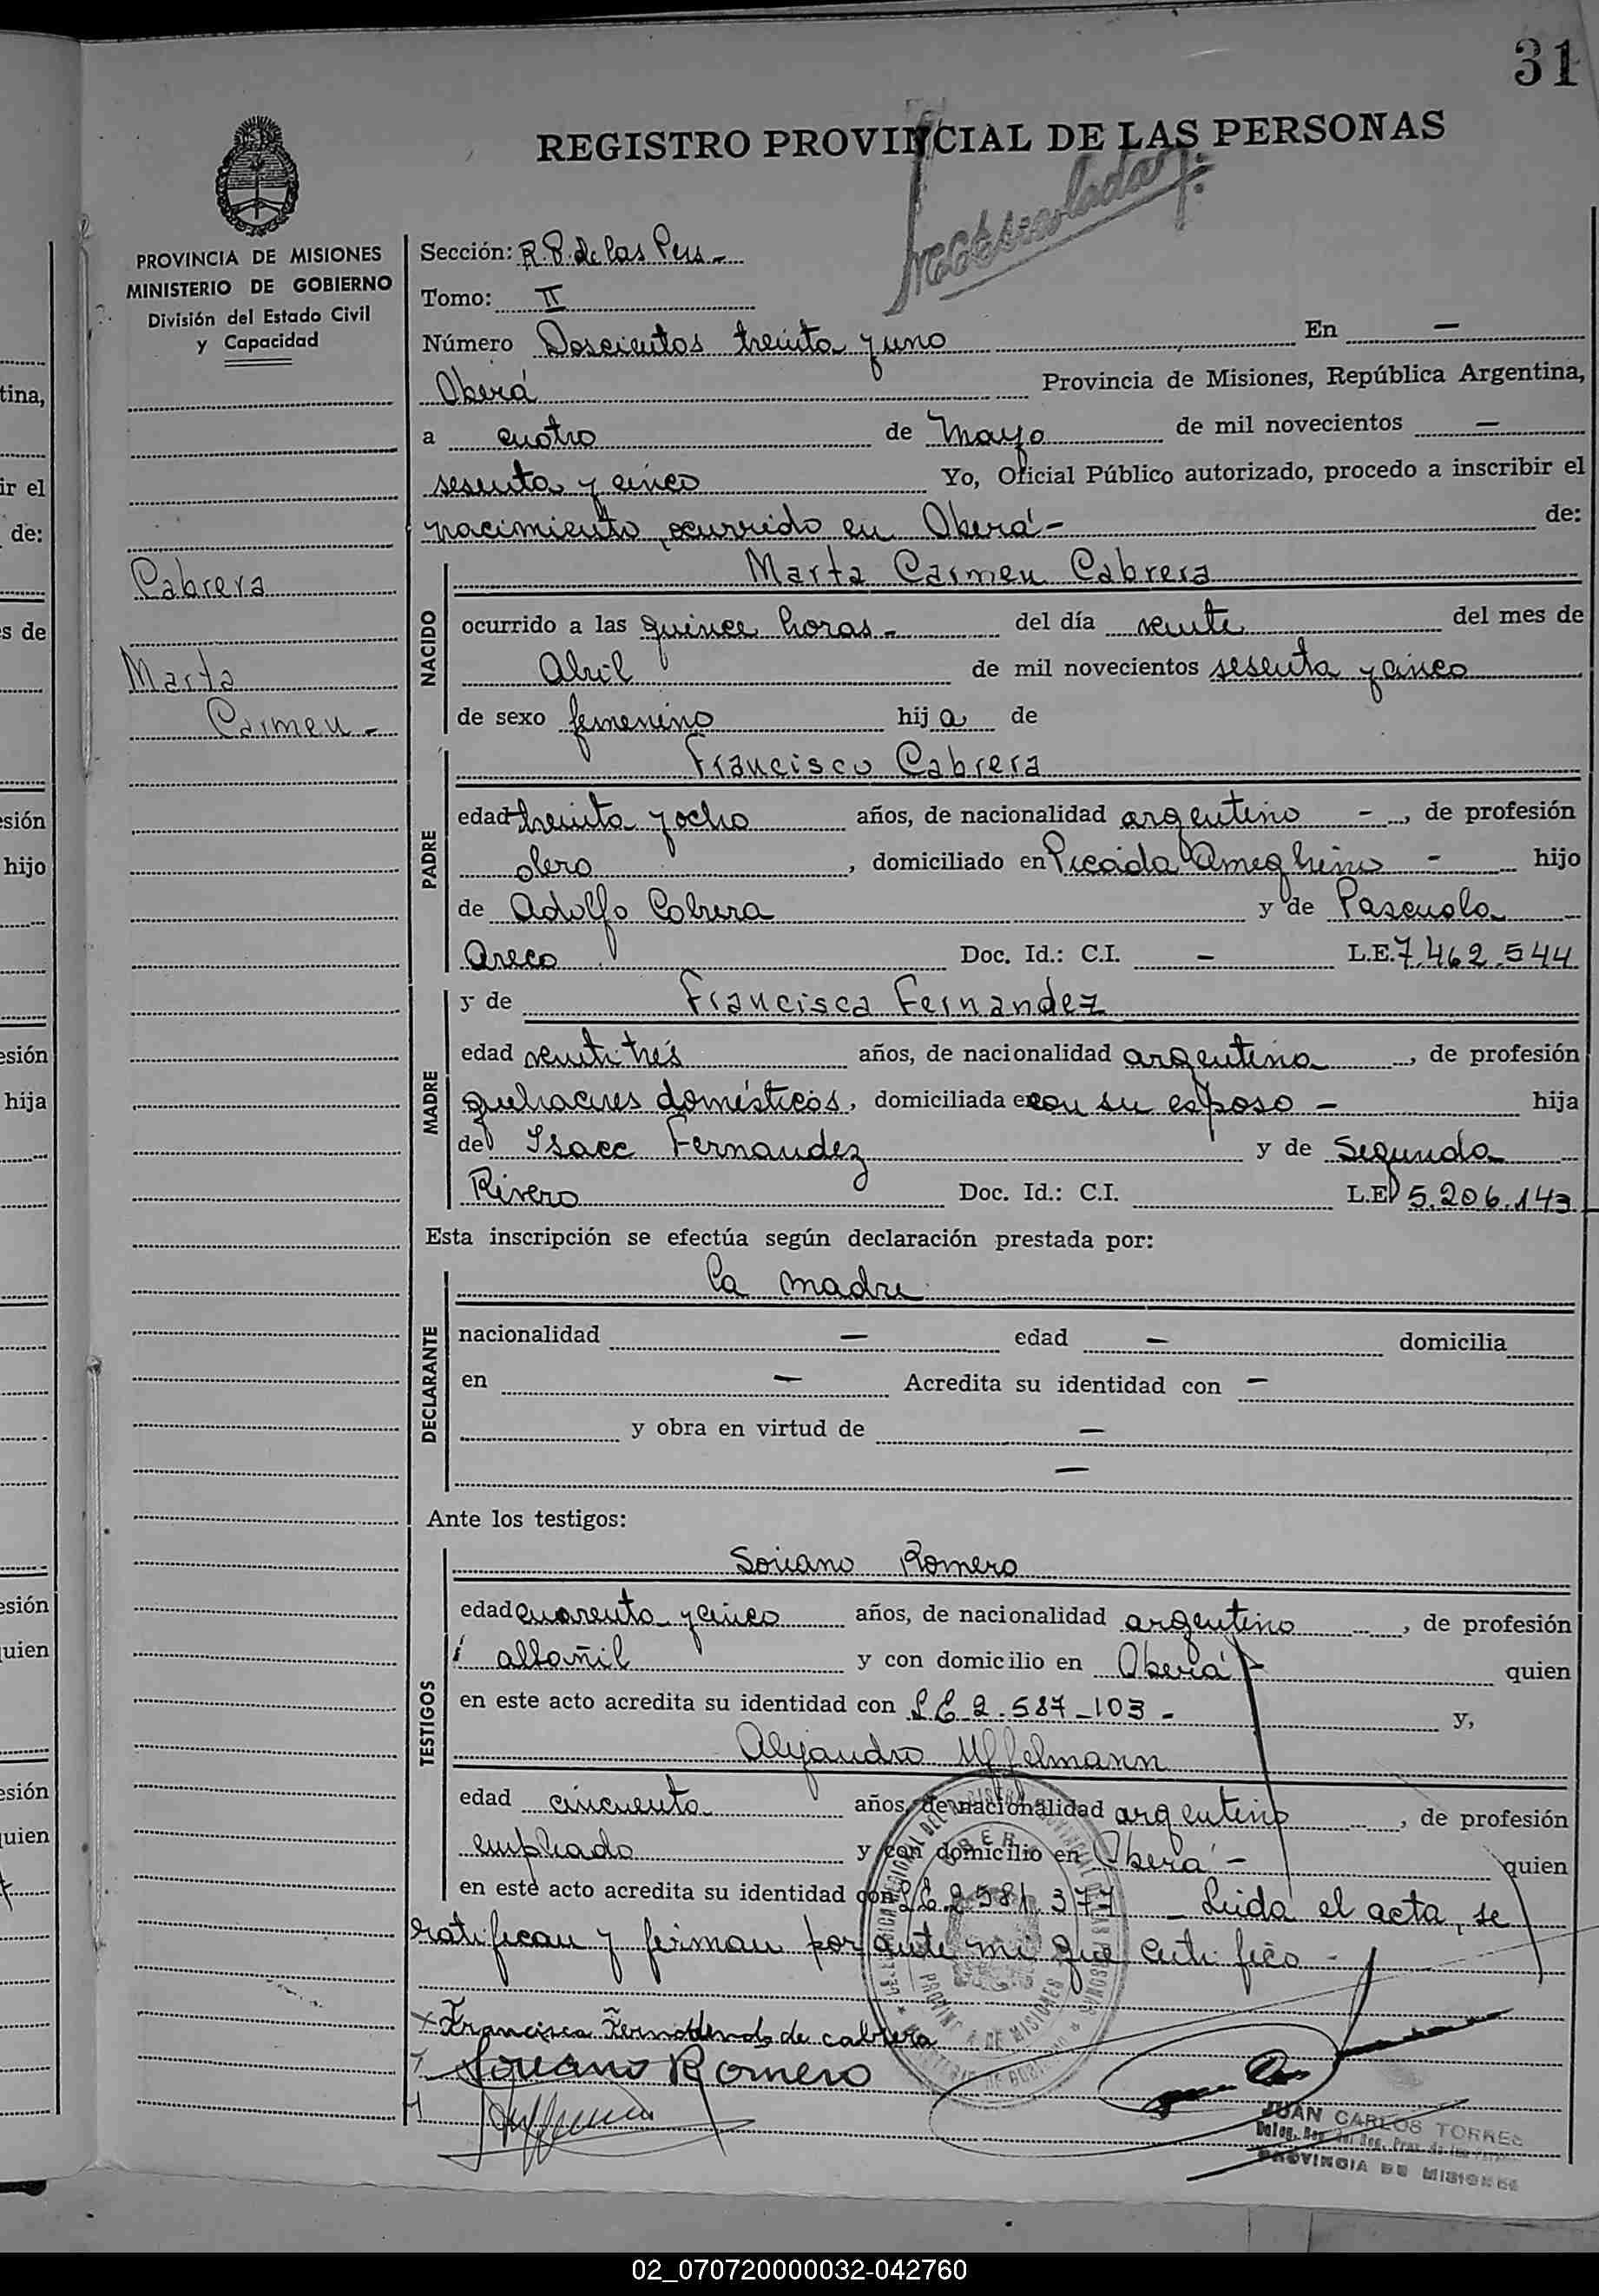 31
REGISTRO PROVINCIAL DE LAS PERSONAS
PROVINCIA DE MISIONES
MINISTERIO DE GOBIERNO
División del Estado Civil
y Capacidad
Cabrera
Marta
Carmen -
Sección: R. P. de las Pers -
Tomo: II
Número Doscientos treinta y uno En —
Oberá Provincia de Misiones, República Argentina,
a cuatro de Mayo de mil novecientos —
sesenta y cinco Yo, Oficial Público autorizado, procedo a inscribir el
nacimiento, ocurrido en Oberá - de:
NACIDO
Marta Carmen Cabrera
ocurrido a las quince horas - del día veinte del mes de
Abril de mil novecientos sesenta y cinco
de sexo femenino hija de
PADRE
Francisco Cabrera
edad treinta y ocho años, de nacionalidad argentino -, de profesión
olero, domiciliado en Picada Ameghino - hijo
de Adolfo Cabrera y de Pascuala
Areco Doc. Id.: C.I. — L.E. 7.462.544
MADRE
y de Francisca Fernandez
edad veintitrés años, de nacionalidad argentina, de profesión
quehaceres domésticos, domiciliada en con su esposo - hija
de Isacc Fernandez y de Segunda
Rivero Doc. Id.: C.I. L.E. 5.206.143
Esta inscripción se efectúa según declaración prestada por:
DECLARANTE
La madre
nacionalidad — edad — domicilia
en — Acredita su identidad con —
y obra en virtud de —
—
Ante los testigos:
TESTIGOS
Soriano Romero
edad cuarenta y cinco años, de nacionalidad argentino, de profesión
albañil y con domicilio en Oberá - quien
en este acto acredita su identidad con L E 2.587-103 - y,
Alejandro Uffelmann
edad cincuenta años, de nacionalidad argentino, de profesión
empleado y con domicilio en Oberá - quien
en este acto acredita su identidad con L E. 2 581 377 - Leida el acta, se
ratifican y firman por ante mi que certifico -
Francisca de cabrera
Soriano Romero
JUAN CARLOS TORRES
PROVINCIA DE MISIONES
02_070720000032-042760